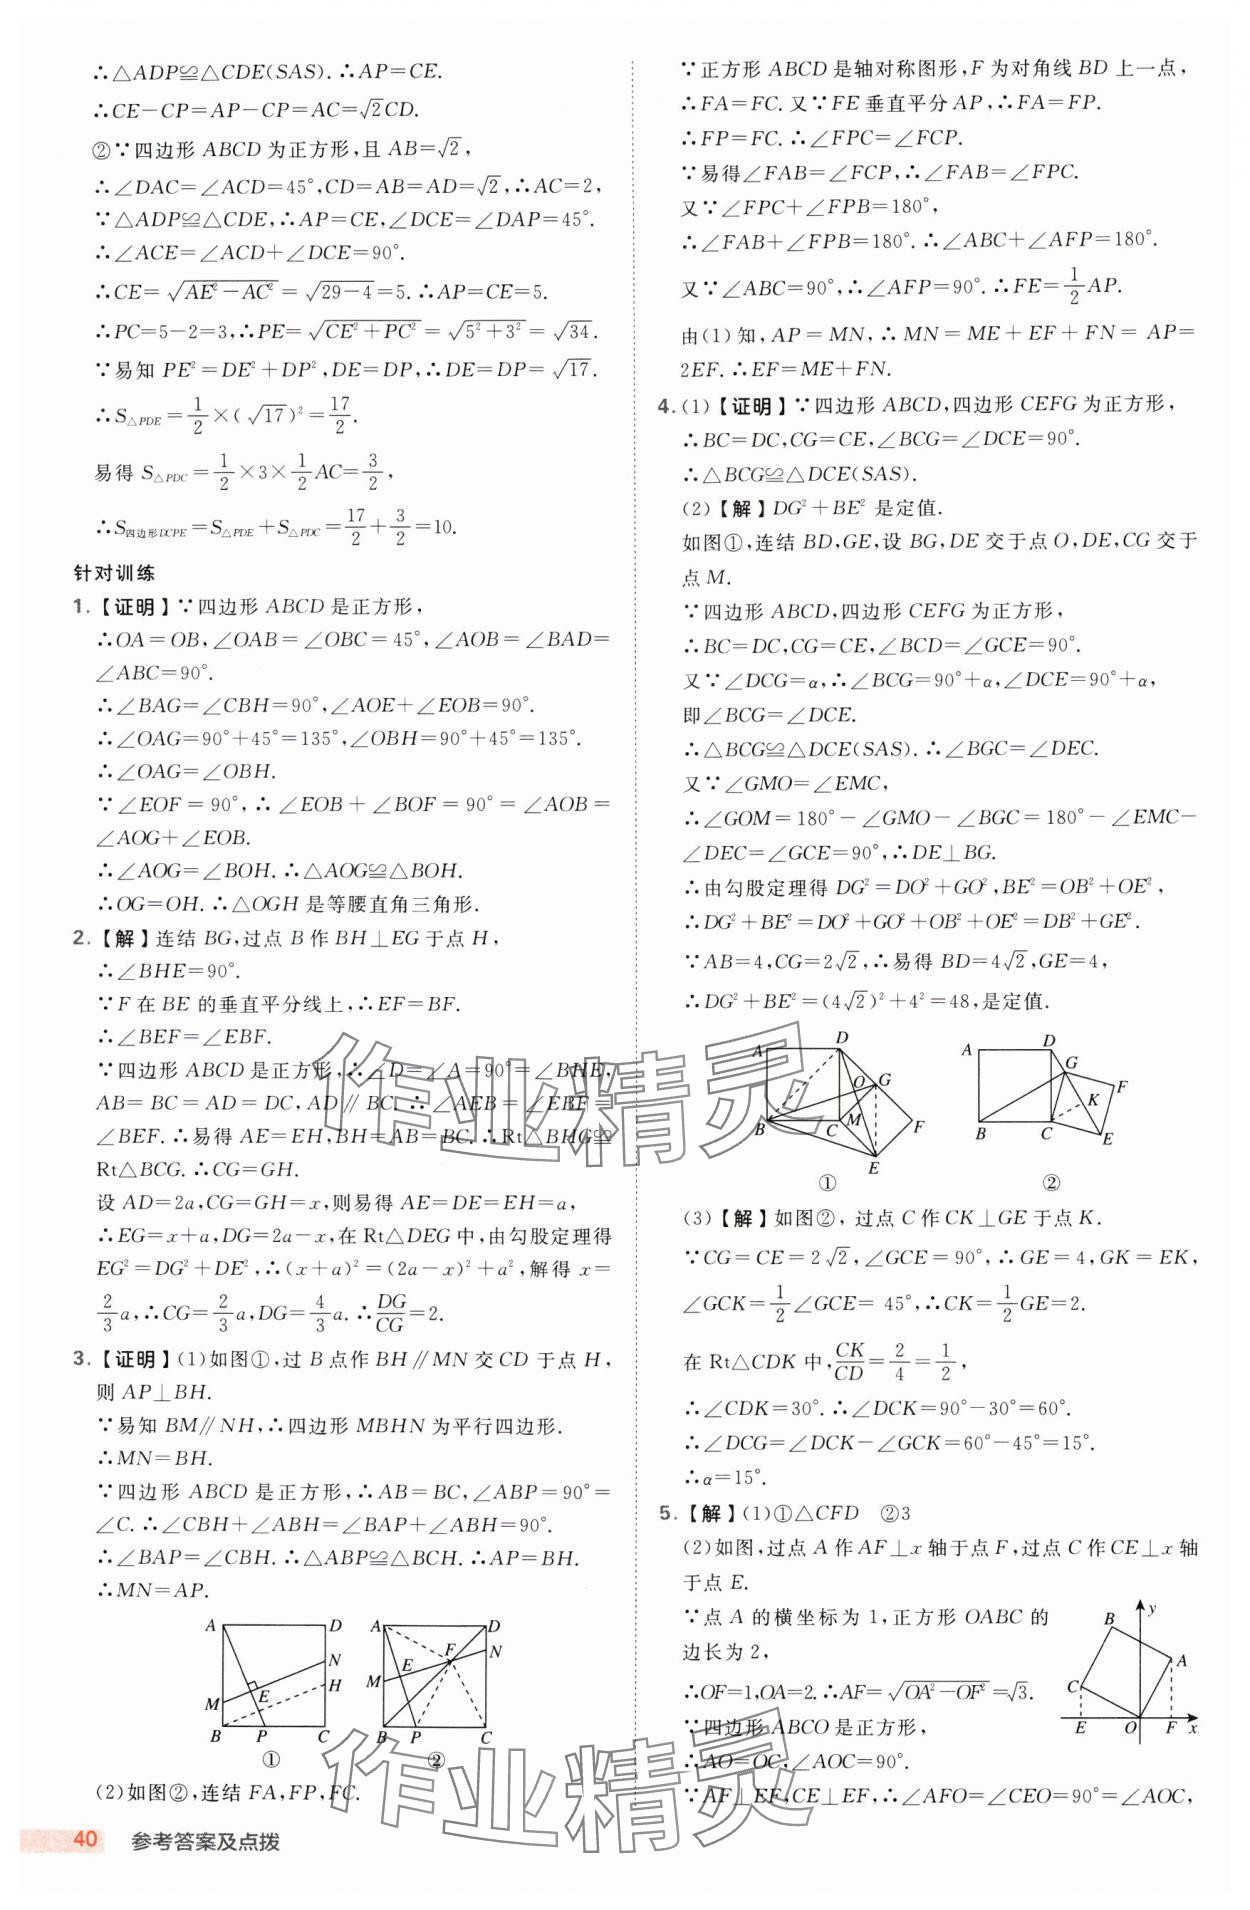 ∴△ADP≌△CDE(SAS). ∴AP=CE.
∴CE-CP=AP-CP=AC=√2CD.
②∵四边形 ABCD 为正方形,且 AB=√2,
∴∠DAC=∠ACD=45°,CD=AB=AD=√2,∴AC=2,
∵△ADP≌△CDE,∴AP=CE,∠DCE=∠DAP=45°.
∴∠ACE=∠ACD+∠DCE=90°.
∴CE=√(AE²-AC²)=√(29-4)=5. ∴AP=CE=5.
∴PC=5-2=3,∴PE=√(CE²+PC²)=√(5²+3²)=√34.
∵易知 PE²=DE²+DP²,DE=DP,∴DE=DP=√17.
∴S△PDE=1/2×(√17)²=17/2.
易得 S△PDC=1/2×3×1/2AC=3/2,
∴S四边形DCPE=S△PDE+S△PDC=17/2+3/2=10.
针对训练
1.【证明】∵四边形 ABCD 是正方形,
∴OA=OB,∠OAB=∠OBC=45°,∠AOB=∠BAD=
∠ABC=90°.
∴∠BAG=∠CBH=90°,∠AOE+∠EOB=90°.
∴∠OAG=90°+45°=135°,∠OBH=90°+45°=135°.
∴∠OAG=∠OBH.
∵∠EOF=90°,∴∠EOB+∠BOF=90°=∠AOB=
∠AOG+∠EOB.
∴∠AOG=∠BOH. ∴△AOG≌△BOH.
∴OG=OH. ∴△OGH 是等腰直角三角形.
2.【解】连结 BG,过点 B 作 BH⊥EG 于点 H,
∴∠BHE=90°.
∵F 在 BE 的垂直平分线上,∴EF=BF.
∴∠BEF=∠EBF.
∵四边形 ABCD 是正方形,∴∠D=∠A=90°=∠BHE,
AB=BC=AD=DC,AD∥BC. ∴∠AEB=∠EBF=
∠BEF. ∴易得 AE=EH,BH=AB=BC. ∴Rt△BHG≌
Rt△BCG. ∴CG=GH.
设 AD=2a,CG=GH=x,则易得 AE=DE=EH=a,
∴EG=x+a,DG=2a-x,在 Rt△DEG 中,由勾股定理得
EG²=DG²+DE²,∴(x+a)²=(2a-x)²+a²,解得 x=
2/3a,∴CG=2/3a,DG=4/3a. ∴DG/CG=2.
3.【证明】(1)如图①,过 B 点作 BH∥MN 交 CD 于点 H,
则 AP⊥BH.
∵易知 BM∥NH,∴四边形 MBHN 为平行四边形.
∴MN=BH.
∵四边形 ABCD 是正方形,∴AB=BC,∠ABP=90°=
∠C. ∴∠CBH+∠ABH=∠BAP+∠ABH=90°.
∴∠BAP=∠CBH. ∴△ABP≌△BCH. ∴AP=BH.
∴MN=AP.
A D N H M E B P C
①
A D F N E M B P C
②
(2)如图②,连结 FA,FP,FC.
∵正方形 ABCD 是轴对称图形,F 为对角线 BD 上一点,
∴FA=FC. 又∵FE 垂直平分 AP,∴FA=FP.
∴FP=FC. ∴∠FPC=∠FCP.
∵易得∠FAB=∠FCP,∴∠FAB=∠FPC.
又∵∠FPC+∠FPB=180°,
∴∠FAB+∠FPB=180°. ∴∠ABC+∠AFP=180°.
又∵∠ABC=90°,∴∠AFP=90°. ∴FE=1/2AP.
由(1)知,AP=MN,∴MN=ME+EF+FN=AP=
2EF. ∴EF=ME+FN.
4.(1)【证明】∵四边形 ABCD,四边形 CEFG 为正方形,
∴BC=DC,CG=CE,∠BCG=∠DCE=90°.
∴△BCG≌△DCE(SAS).
(2)【解】DG²+BE² 是定值.
如图①,连结 BD,GE,设 BG,DE 交于点 O,DE,CG 交于
点 M.
∵四边形 ABCD,四边形 CEFG 为正方形,
∴BC=DC,CG=CE,∠BCD=∠GCE=90°.
又∵∠DCG=α,∴∠BCG=90°+α,∠DCE=90°+α,
即∠BCG=∠DCE.
∴△BCG≌△DCE(SAS). ∴∠BGC=∠DEC.
又∵∠GMO=∠EMC,
∴∠GOM=180°-∠GMO-∠BGC=180°-∠EMC-
∠DEC=∠GCE=90°,∴DE⊥BG.
∴由勾股定理得 DG²=DO²+GO²,BE²=OB²+OE²,
∴DG²+BE²=DO²+GO²+OB²+OE²=DB²+GE².
∵AB=4,CG=2√2,∴易得 BD=4√2,GE=4,
∴DG²+BE²=(4√2)²+4²=48,是定值.
A D O G B C M F E
①
A D G F K B C E
②
(3)【解】如图②,过点 C 作 CK⊥GE 于点 K.
∵CG=CE=2√2,∠GCE=90°,∴GE=4,GK=EK,
∠GCK=1/2∠GCE=45°,∴CK=1/2GE=2.
在 Rt△CDK 中,CK/CD=2/4=1/2,
∴∠CDK=30°. ∴∠DCK=90°-30°=60°.
∴∠DCG=∠DCK-∠GCK=60°-45°=15°.
∴α=15°.
5.【解】(1)①△CFD ②3
(2)如图,过点 A 作 AF⊥x 轴于点 F,过点 C 作 CE⊥x 轴
于点 E.
∵点 A 的横坐标为 1,正方形 OABC 的
边长为 2,
∴OF=1,OA=2. ∴AF=√(OA²-OF²)=√3.
∵四边形 ABCO 是正方形,
∴AO=OC,∠AOC=90°.
∵AF⊥EF,CE⊥EF,∴∠AFO=∠CEO=90°=∠AOC,
B y A C E O F x
作业精灵
作业精灵
40 参考答案及点拨